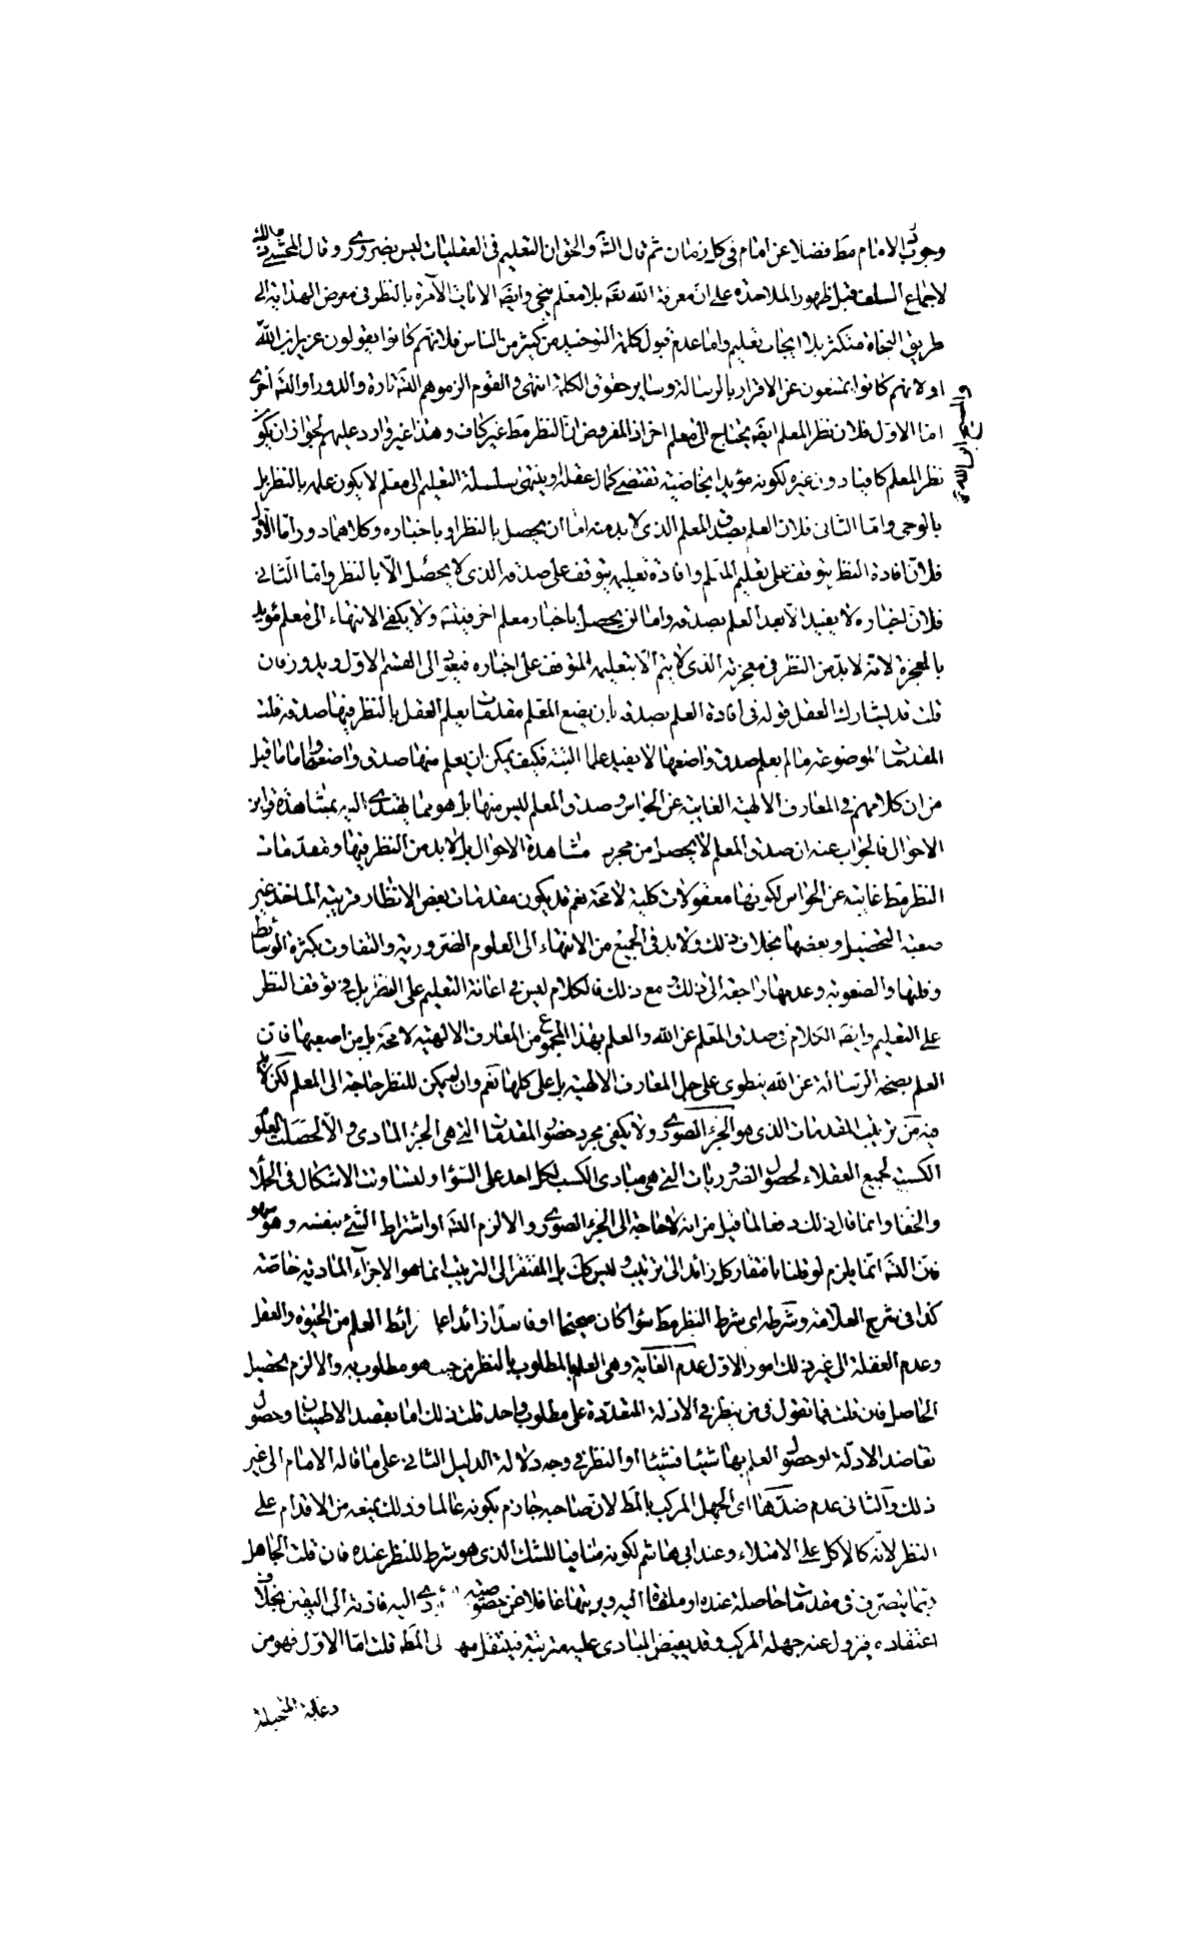 وجوب الامام مط فضلا عن امام فى كل زمان ثم قال الشه والحق ان التعليم فى العقليات ليس بضرورى وقال المحشى
لاجماع السلف قبل ظهور الملاحدة على ان معرفة الله تعه بلا معلم ينجى وايضه الايات الآمرة بالنظر فى معرض الهداية الى
طريق النجاة متكثر بلا ايجاب تعليم واما عدم قبول كلمة التوحيد من كثير من الناس فلانهم كانوا يقولون عزير ابن الله
والمسيح ابن الله
او لانهم كانوا يمنعون عن الاقرار بالرسالة وساير حقوق الكلمة انتهى والقوم الزموهم التسه تارة والدور او التسه اخرى
اما الاول فلان نظر المعلم ايضه يحتاج الى معلم اخر اذ المفروض ان النظر مط غير كاف وهذا غير وارد عليهم لجواز ان يكون
نظر المعلم كافيا دون غيره لكونه مؤيدا بخاصية تقتضى كمال عقله او ينتهى سلسلة التعليم الى معلم لا يكون علمه بالنظر بل
بالوحى واما الثانى فلان العلم بصدق المعلم الذى لا بد منه اما ان يحصل بالنظر او باخباره وكلاهما دور اما الاول
فلان افادة النظر يتوقف على تعليم المعلم وافادة تعليمه يتوقف على صدقه الذى لا يحصل الا بالنظر واما الثانى
فلان اخباره لا يفيد الا بعد العلم بصدقه واما ان يحصل باخبار معلم اخر فيتسه ولا يكفى الانتهاء الى معلم مؤيد
بالمعجزة لانه لا بد من النظر فى معجزته الذى لا يتم الا بتعليمه المتوقف على اخباره فيعود الى القسم الاول ويدور فان
قلت قد يشارك العقل قوله فى افادة العلم بصدقه بان يضع المعلم مقدمات يعلم العقل بالنظر فيها صدقه قلت
المقدمات الموضوعة ما لم يعلم صدق واضعها لا يفيد علما البتة فكيف يمكن ان يعلم منها صدق واضعها واما ما قيل
من ان كلامهم فى المعارف الالهية الغايبة عن الحواس وصدق المعلم ليس منها بل هو مما يهتدى اليه بمشاهدة قراين
الاحوال فالجواب عنه ان صدق المعلم لا يحصل من مجرد مشاهدة الاحوال بل لا بد من النظر فيها ومقدمات
النظر مط غايبة عن الحواس لكونها معقولات كلية لا محة نعم قد يكون مقدمات بعض الانظار قريبة الماخذ غير
صعبة التحصيل وبعضها بخلاف ذلك ولا بد فى الجميع من الانتهاء الى العلوم الضرورية والتفاوت بكثرة الوسائط
وقلتها والصعوبة وعدمها راجعة الى ذلك ومع ذلك فالكلام ليس فى اعانة التعليم على النظر بل فى توقف النظر
على التعليم وايضه الكلام فى صدق المعلم عن الله والعلم بهذا المجموع من المعارف الالهية لا محة بل من اصعبها فان
العلم بصحة الرسالة عن الله ينطوى على جل المعارف الالهية بل على كلها نعم وان لم يكن للنظر حاجة الى المعلم لكن لا بد
فيه من ترتيب المقدمات الذى هو الجزء الصورى ولا يكفى مجرد حضور المقدمات التى هى الجزء المادى والا لحصلت العلوم
الكسبية لجميع العقلاء لحصول الضروريات التى هى مبادى الكسب لكل احد على السواء ولتساوت الاشكال فى الجلاء
والخفاء وانما قال ذلك دفعا لما قيل من انه لا حاجة الى الجزء الصورى والا لزم التسه او اشتراط الشئ بنفسه وهو سهو
فان التسه انما يلزم لو قلنا بافتقار كل زائد الى ترتيب وليس كك بل المفتقر الى الترتيب انما هو الاجزاء المادية خاصة
كذا فى شرح العلامة وشرطه اى شرط النظر مط سواء كان صحيحا او فاسدا زائدا على رائط العلم من الحيوة والعقل
وعدم الغفلة الى غير ذلك امور الاول عدم الغاية وهى العلم بالمطلوب بالنظر من حيث هو مطلوب به والا لزم تحصيل
الحاصل فان قلت فما تقول فى من ينظر فى الادلة المتعددة على مطلوب واحد قلت ذلك اما بقصد الاطمينان وحصول
تعاضد الادلة لو حصول العلم بها شيئا فشيئا او النظر فى وجه دلالة الدليل الثانى على ما قاله الامام الى غير
ذلك والثانى عدم ضدها اى الجهل المركب بالمط لان صاحبه جازم بكونه عالما وذلك يمنعه من الاقدام على
النظر لانه كالاكل على الامتلاء وعند ابى هاشم لكونه منافيا للشك الذى هو شرط للنظر عنده فان قلت الجاهل
ربما يتصرف فى مقدمات حاصلة عنده او ملقاة اليه ويرتبها غافلا عن خصوصية ى اليه فادته الى اليقين بخلاف
اعتقاده فيزول عنه جهله المركب وقد يفيض المبادى عليه مرتبة فينتقل منها لى المط قلت اما الاول فهو من
رعاية المخيلة